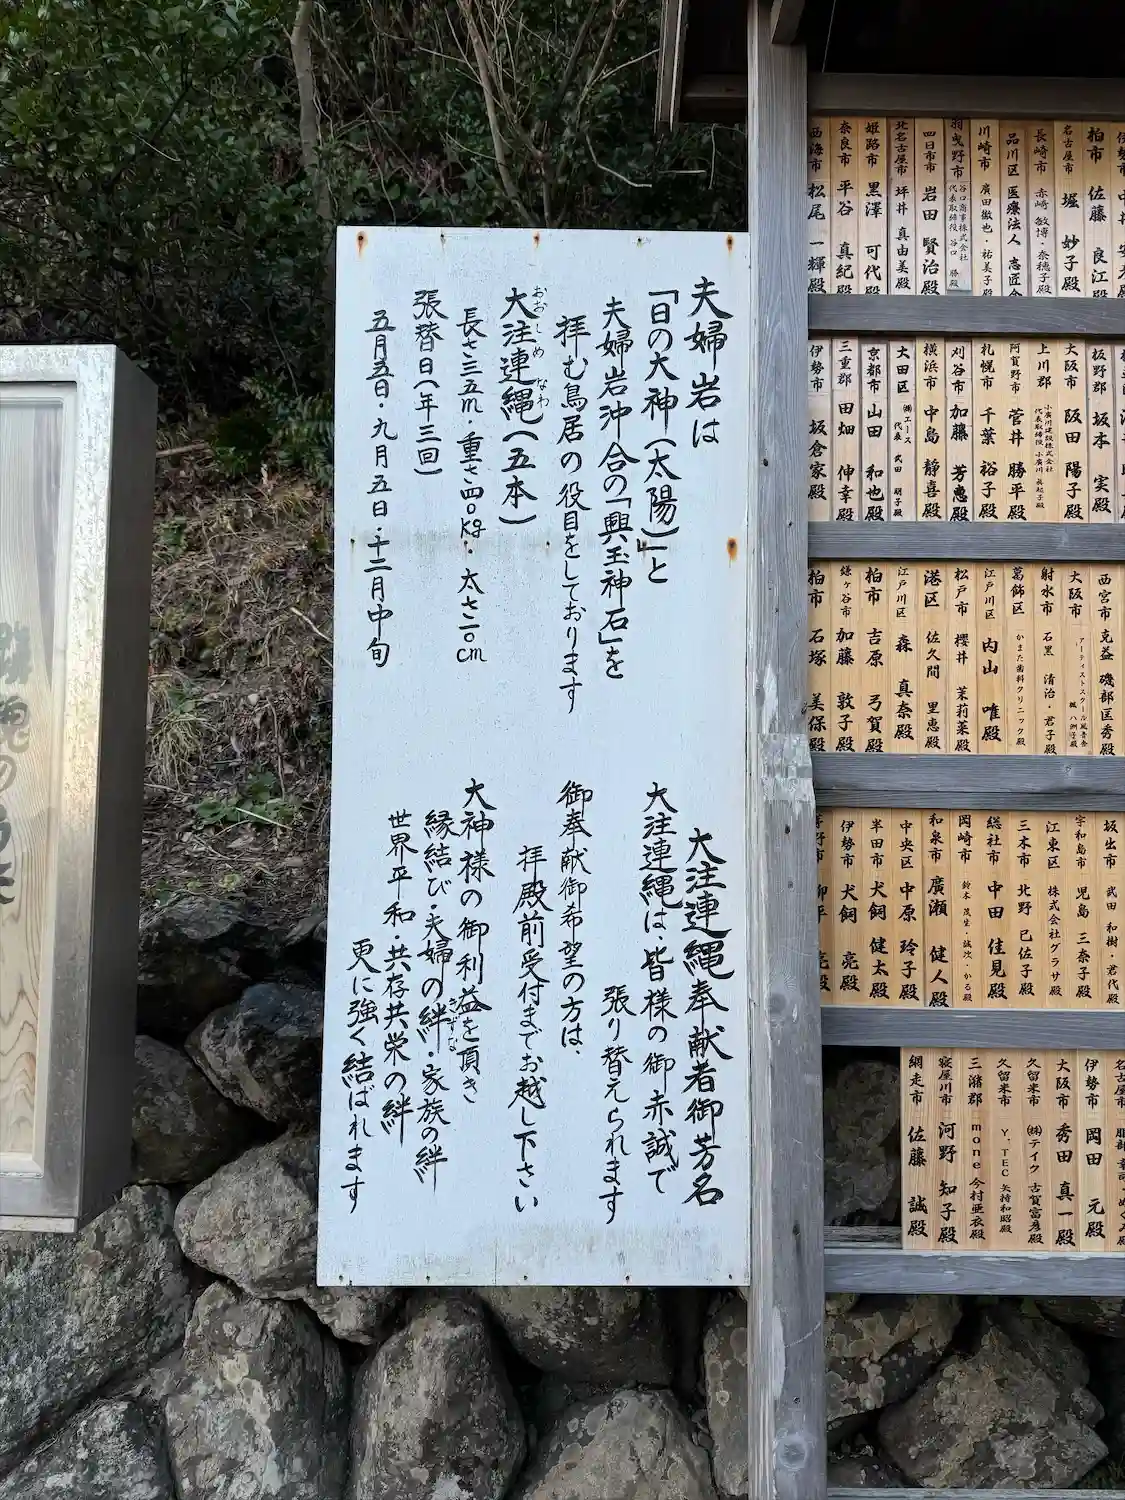 夫婦岩は
「日の大神(太陽)」と
夫婦岩沖合の「興玉神石」を
拝む鳥居の役目をしております
大注連縄(五本)
おおしめなわ
長さ三五m・重さ四〇kg・太さ一〇cm
張替日(年三回)
五月五日・九月五日・十二月中旬
大注連縄奉献者御芳名
大注連縄は、皆様の御赤誠で
張り替えられます
御奉献御希望の方は、
拝殿前受付までお越し下さい
大神様の御利益を頂き
縁結び・夫婦の絆・家族の絆
きずな
世界平和・共存共栄の絆
更に強く結ばれます
柏市 佐藤 良江殿
名古屋市 堀 妙子殿
長崎市 赤崎 敏博・奈穂子殿
品川区 医療法人
川崎市 廣田徹也・祐美子殿
羽曳野市 谷口商事株式会社 代表取締役 谷口 勝殿
四日市市 岩田 賢治殿
北名古屋市 坪井 真由美殿
姫路市 黒澤 可代殿
奈良市 平谷 真紀殿
西海市 松尾 一輝殿
板野郡 坂本 実殿
大阪市 阪田 陽子殿
上川郡
阿賀野市 菅井 勝平殿
札幌市 千葉 裕子殿
刈谷市 加藤 芳恵殿
横浜市 中島 静喜殿
大田区 ㈱エース 代表 武田 朋子殿
京都市 山田 和也殿
三重郡 田畑 伸幸殿
伊勢市 坂倉家殿
西宮市 克益 磯部匡秀殿
大阪市
射水市 石黒 清治・君子殿
葛飾区 かまた歯科クリニック殿
江戸川区 内山 唯殿
松戸市 櫻井 茉莉菜殿
港区 佐久間 里恵殿
江戸川区 森 真奈殿
柏市 吉原 弓賀殿
鎌ヶ谷市 加藤 敦子殿
柏市 石塚 美保殿
坂出市 武田 和樹・君代殿
宇和島市 児島 三奈子殿
江東区 株式会社グラサ殿
三木市 北野 巳佐子殿
総社市 中田 佳見殿
岡崎市 鈴木 茂生・誠次・かる殿
和泉市 廣瀬 健人殿
中央区 中原 玲子殿
半田市 犬飼 健太殿
伊勢市 犬飼 亮殿
伊勢市 岡田 元殿
大阪市 秀田 真一殿
久留米市 ㈱テイク 古賀富彦殿
久留米市 Y.TEC 矢持和昭殿
三潴郡 mone 今村亜衣殿
寝屋川市 河野 知子殿
網走市 佐藤 誠殿